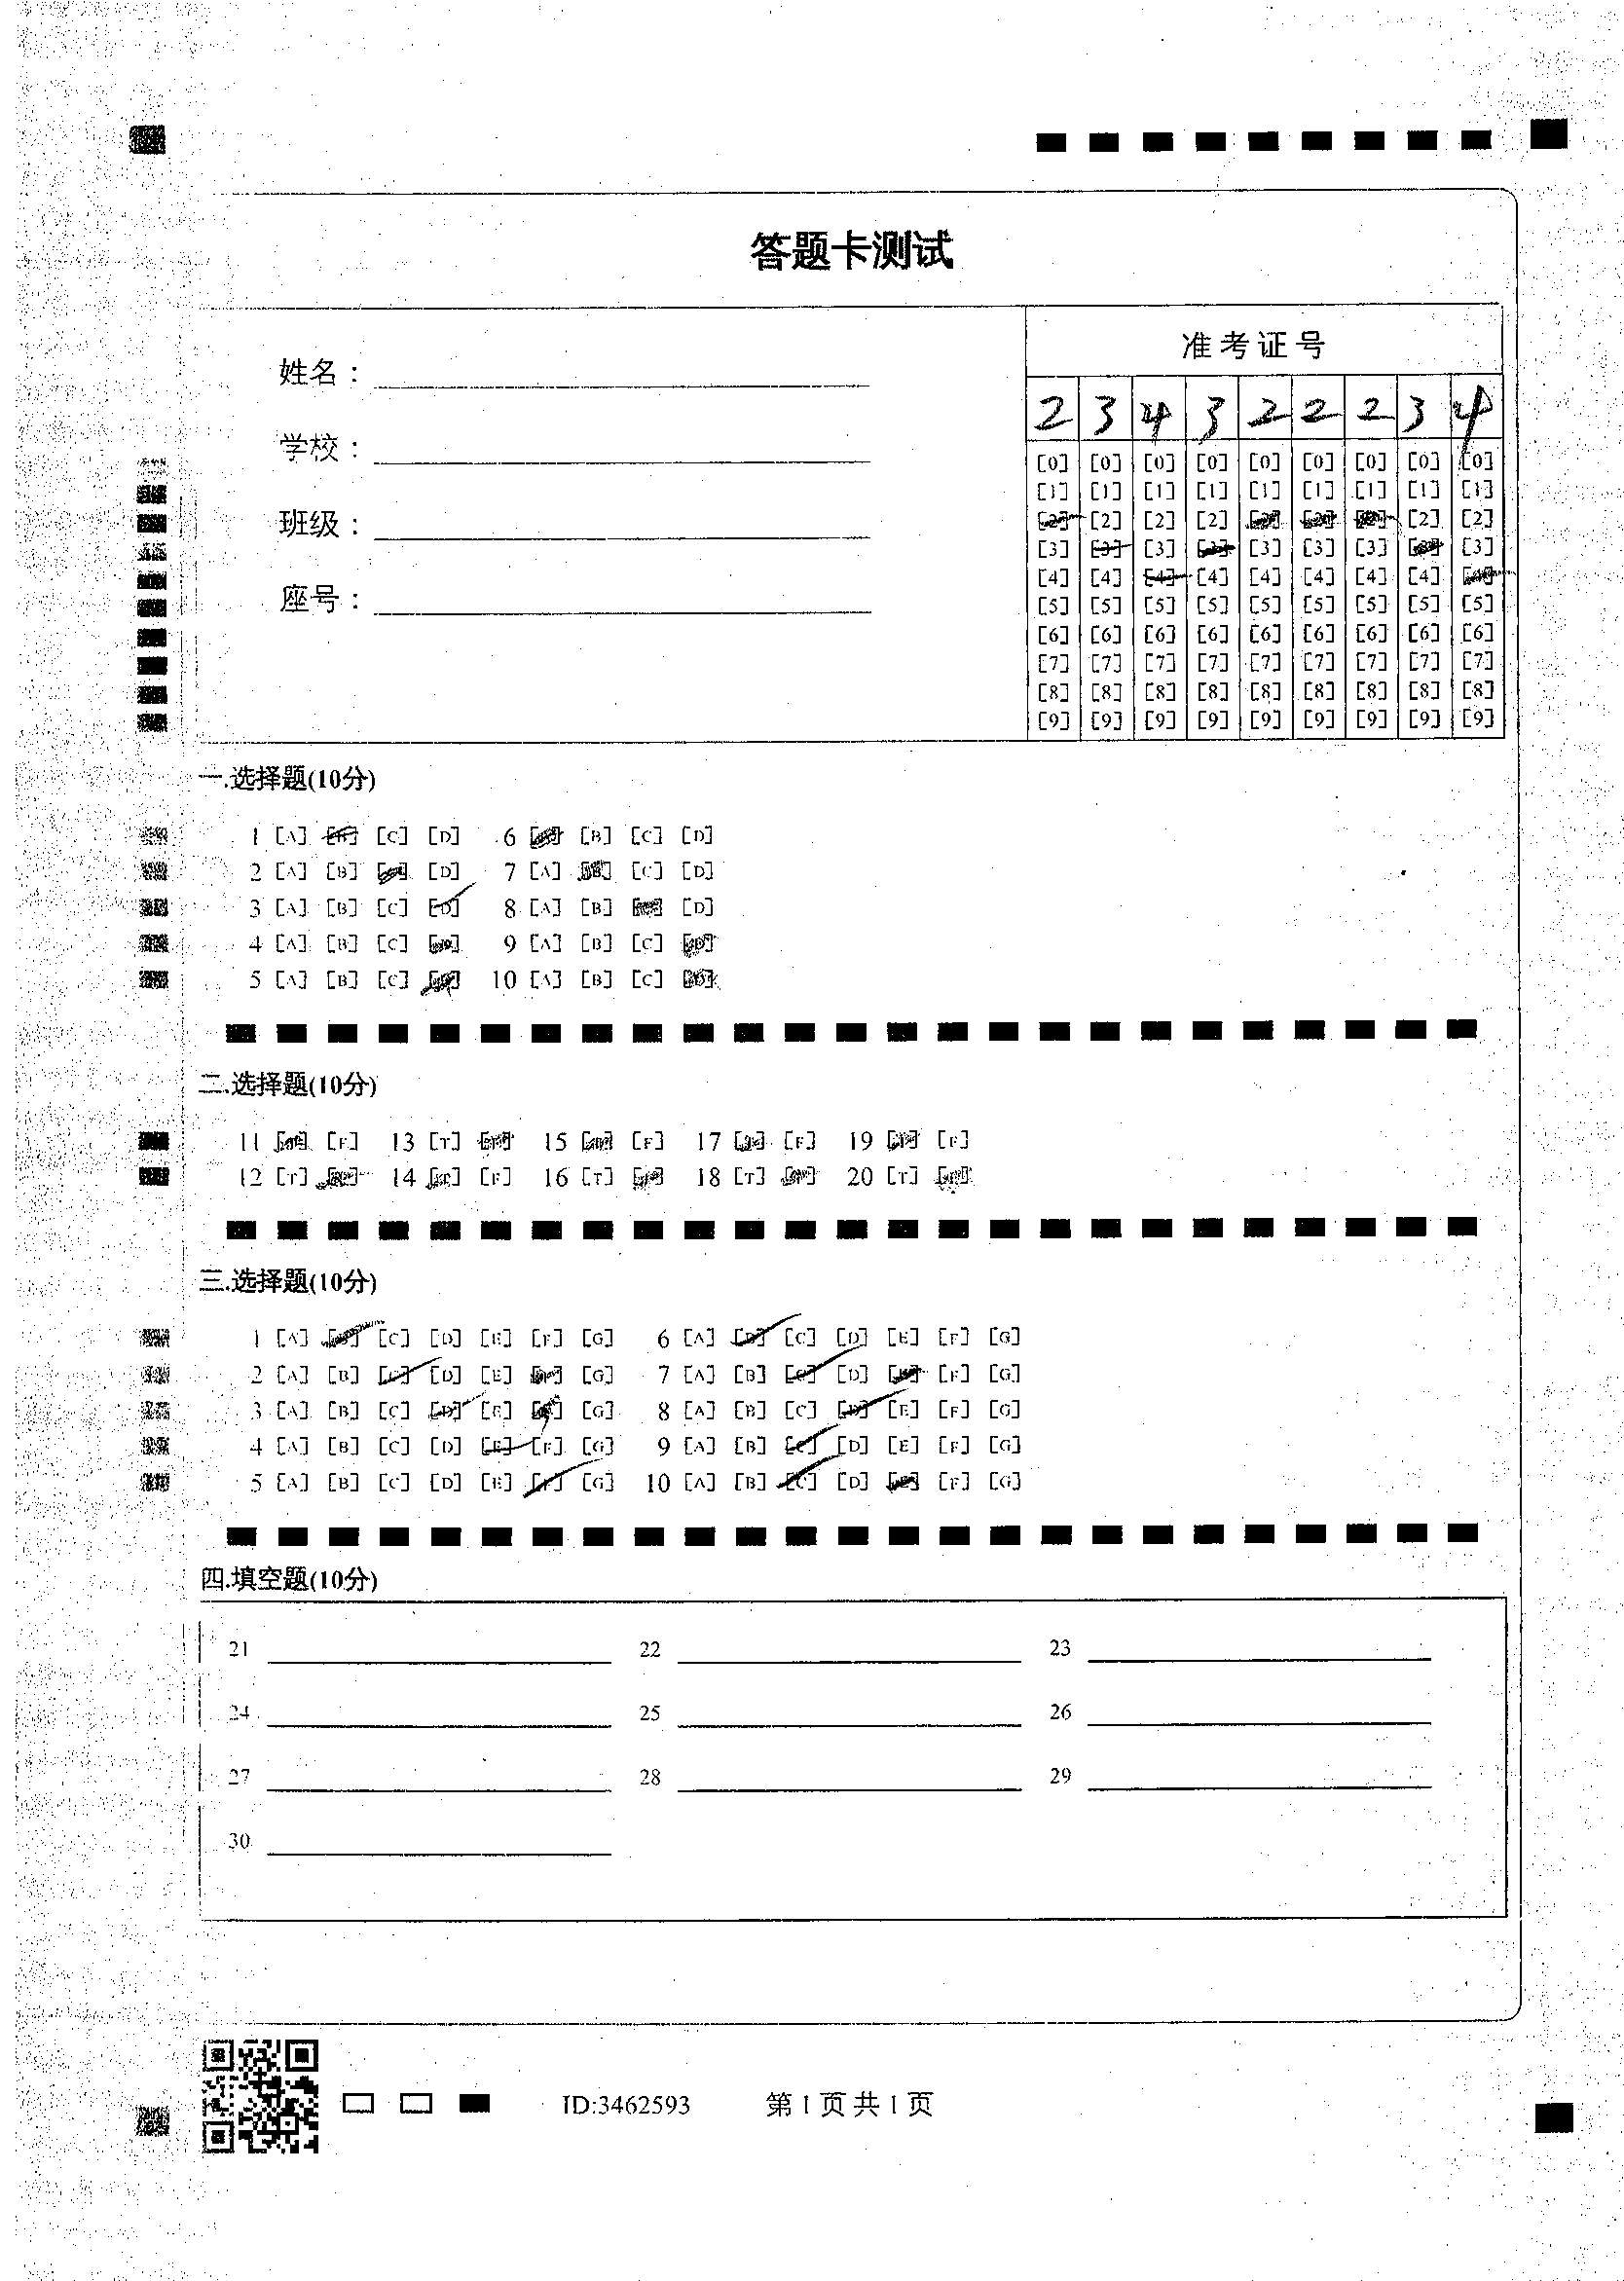 答题卡测试
姓名：
学校：
班级：
座号：
准考证号
2 3 4 3 2 2 2 3 4
[0] [0] [0] [0] [0] [0] [0] [0] [0]
[1] [1] [1] [1] [1] [1] [1] [1] [1]
[2] [2] [2] [2] [2] [2]
[3] [3] [3] [3] [3] [3]
[4] [4] [4] [4] [4] [4] [4]
[5] [5] [5] [5] [5] [5] [5] [5] [5]
[6] [6] [6] [6] [6] [6] [6] [6] [6]
[7] [7] [7] [7] [7] [7] [7] [7] [7]
[8] [8] [8] [8] [8] [8] [8] [8] [8]
[9] [9] [9] [9] [9] [9] [9] [9] [9]
一.选择题(10分)
1 [A] [C] [D] 6 [B] [C] [D]
2 [A] [B] [D] 7 [A] [C] [D]
3 [A] [B] [C] [D] 8 [A] [B] [D]
4 [A] [B] [C] 9 [A] [B] [C]
5 [A] [B] [C] 10 [A] [B] [C]
二.选择题(10分)
11 [F] 13 [T] 15 [F] 17 [F] 19 [F]
12 [T] 14 [F] 16 [T] 18 [T] 20 [T]
三.选择题(10分)
1 [A] [C] [D] [E] [F] [G] 6 [A] [B] [C] [D] [E] [F] [G]
2 [A] [B] [C] [D] [E] [G] 7 [A] [B] [C] [D] [F] [G]
3 [A] [B] [C] [D] [E] [G] 8 [A] [B] [C] [D] [E] [F] [G]
4 [A] [B] [C] [D] [E] [F] [G] 9 [A] [B] [C] [D] [E] [F] [G]
5 [A] [B] [C] [D] [E] [F] [G] 10 [A] [B] [C] [D] [F] [G]
四.填空题(10分)
21 22 23
24 25 26
27 28 29
30
ID:3462593 第1页共1页